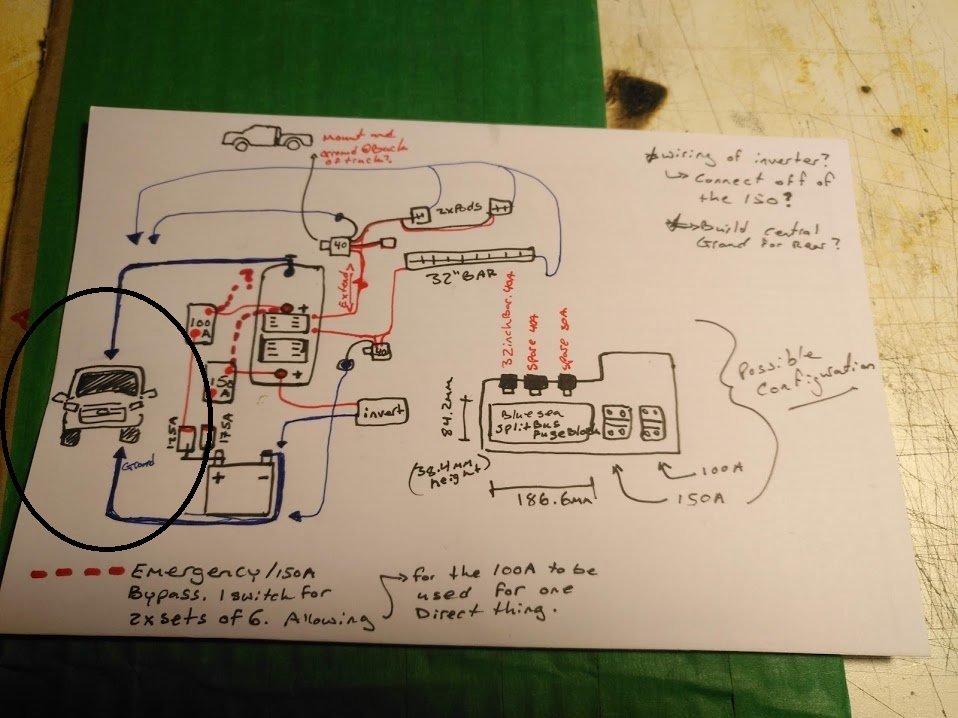 Mount and
Ground @Back
of truck?
*wiring of inverter?
↳ Connect off of
the 150?
*Build central
Ground for Rear?
2xPods
40
32" BAR
Extend
100
A
+
150
A
40
+
invert
125A
175A
Ground
+ -
32inchBar.40A
Spare 40A
Spare 80A
84.2mm
Bluesea
Split Bus
FuseBlock
(38.4mm
height)
186.6mm
100A
150A
Possible
Configuration
Emergency/150A
Bypass. 1 switch for
2x sets of 6. Allowing
for the 100A to be
used for one
Direct thing.